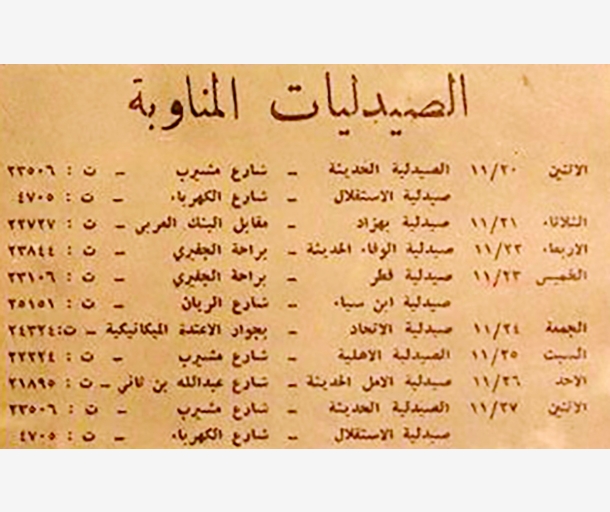 الصيدليات المناوبة
الاثنين ١١/٢٠ الصيدلية الحديثة – شارع مشيرب – ت : ٢٣٥٠٦
صيدلية الاستقلال – شارع الكهرباء – ت : ٤٧٠٥
الثلاثاء ١١/٢١ صيدلية بهزاد – مقابل البنك العربي – ت : ٢٢٧٢٧
الاربعاء ١١/٢٢ صيدلية الوفاء الحديثة – براحة الجفيري – ت : ٢٣٨٤٤
الخميس ١١/٢٣ صيدلية قطر – براحة الجفيري – ت : ٢٣١٠٦
صيدلية ابن سيناء – شارع الريان – ت : ٢٥١٥١
الجمعة ١١/٢٤ صيدلية الاتحاد – بجوار الاعتدة الميكانيكية – ت : ٢٤٣٢٤
السبت ١١/٢٥ الصيدلية الاهلية – شارع مشيرب – ت : ٢٢٢٢٤
الاحد ١١/٢٦ صيدلية الامل الحديثة – شارع عبدالله بن ثاني – ت : ٢١٨٩٥
الاثنين ١١/٢٧ الصيدلية الحديثة – شارع مشيرب – ت : ٢٣٥٠٦
صيدلية الاستقلال – شارع الكهرباء – ت : ٤٧٠٥